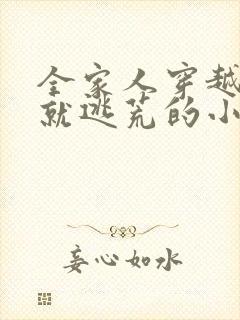 全家人穿越
就逃荒的小
妾心如水